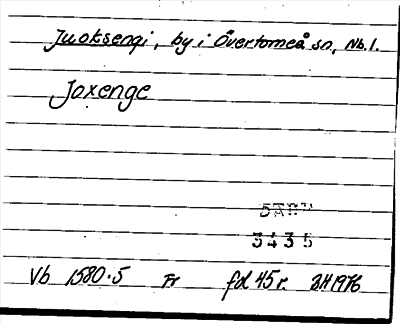 Juoksengi, by i Övertorneå sn, Nb.l.
Joxenge
3435
Vb 1580:5 Fr fol 45 r. BH 1976